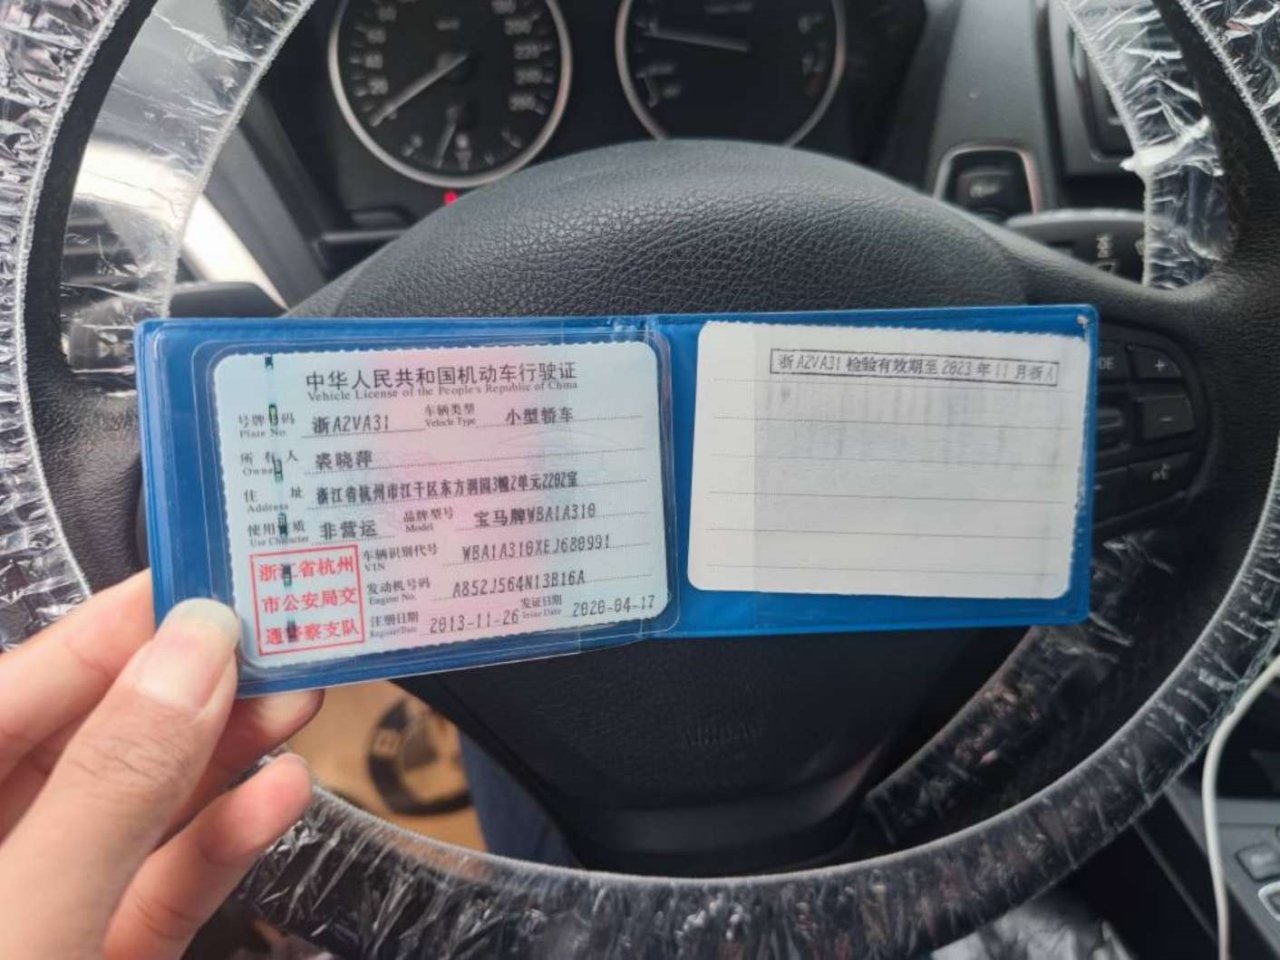 中华人民共和国机动车行驶证
Vehicle License of the People's Republic of China
号牌号码 浙A2VA31 车辆类型 小型轿车
Plate No. Vehicle Type
所有人 裘晓萍
Owner
住址 浙江省杭州市江干区东方润园3幢2单元2202室
Address
使用性质 非营运 品牌型号 宝马牌WBA1A310
Use Character Model
浙江省杭州
市公安局交
通警察支队
车辆识别代号 WBA1A310XEJ680991
VIN
发动机号码 A852J564N13B16A
Engine No.
注册日期 2013-11-26 发证日期 2020-04-17
Register Date Issue Date
浙A2VA31 检验有效期至 2023年11月浙A